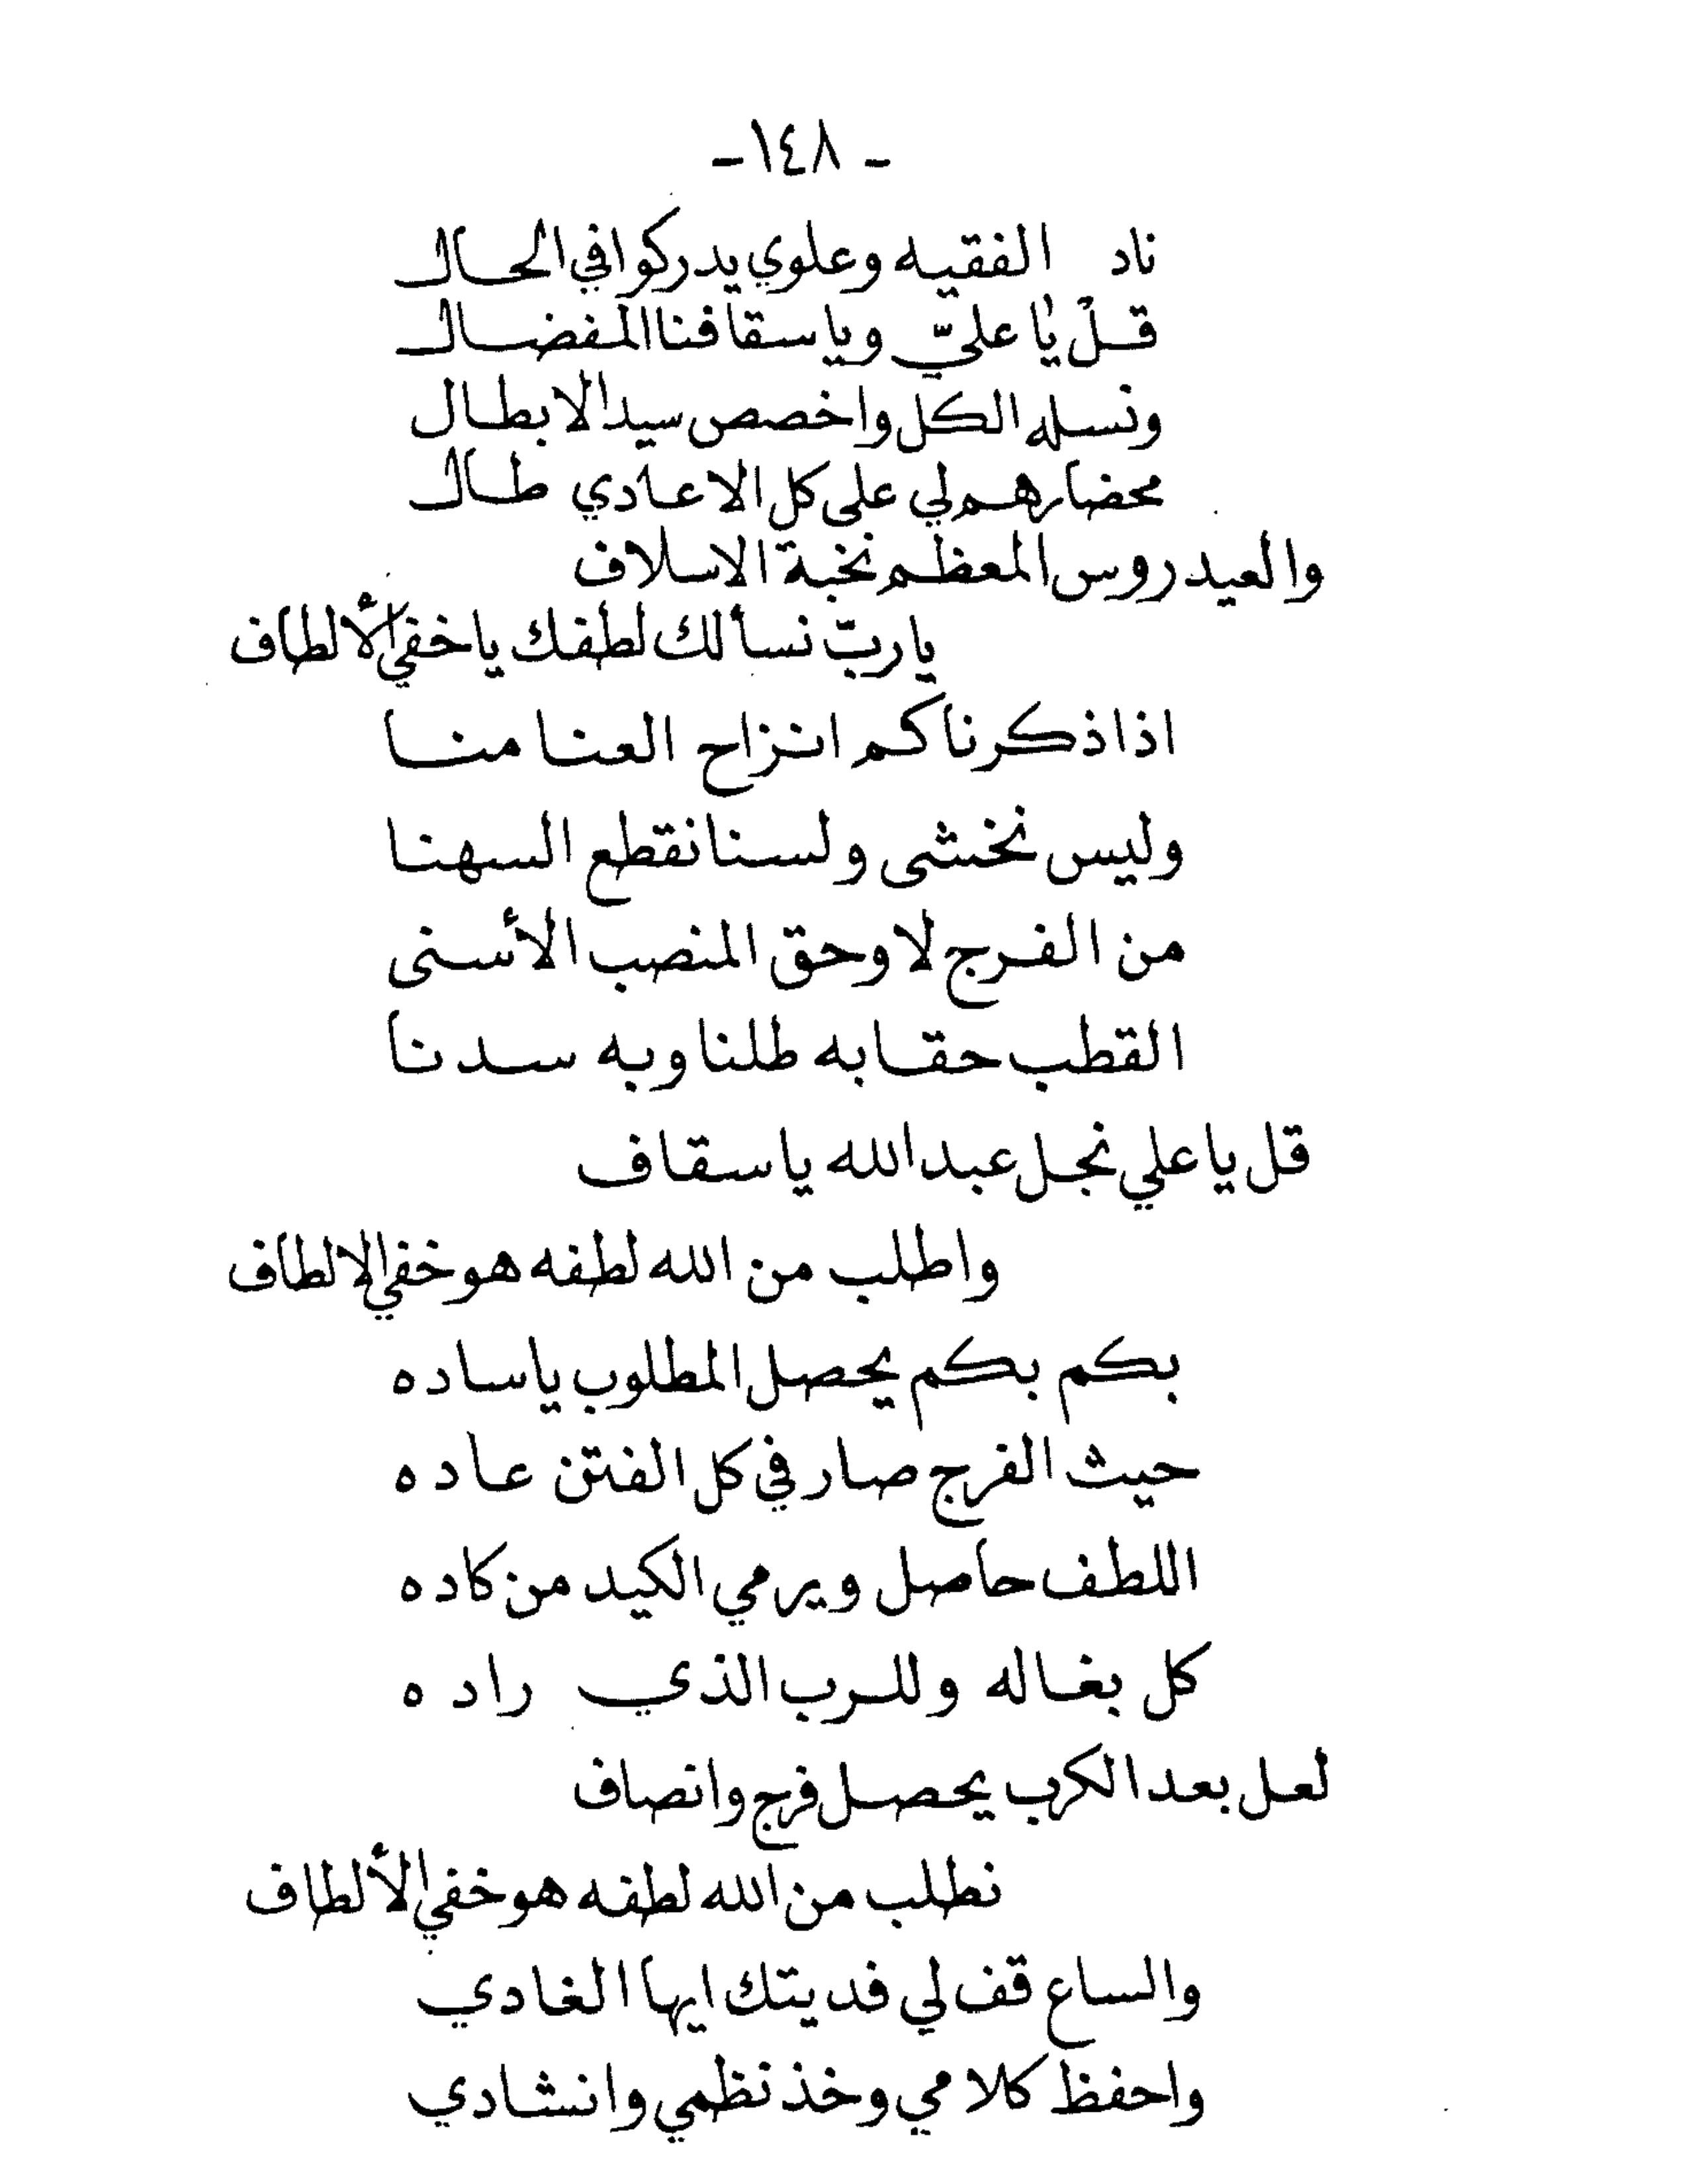 - ١٤٨ -
ناد الفقيه وعلوي يدركوا في الحال
قلْ يا عليّ ويا سقافنا المفضال
ونسله الكل واخصص سيد الابطال
محضارهم لي على كل الاعادي طال
والعيدروس المعظم نخبة الاسلاف
يا ربّ نسألك لطفك يا خفي الألطاف
اذا ذكرناكم انزاح العنا منا
وليس نخشى ولسنا نقطع السهنا
من الفرج لا وحق المنصب الأسنى
القطب حقا به طلنا وبه سدنا
قل يا علي نجل عبدالله يا سقاف
واطلب من الله لطفه هو خفي الالطاف
بكم بكم يحصل المطلوب يا ساده
حيث الفرج صار في كل الفتن عاده
اللطف حاصل ويرمي الكيد من كاده
كل بغاله وللرب الذي راده
لعل بعد الكرب يحصل فرج وانصاف
نطلب من الله لطفه هو خفي الألطاف
والساع قف لي فديتك ايها الغادي
واحفظ كلامي وخذ نظمي وانشادي